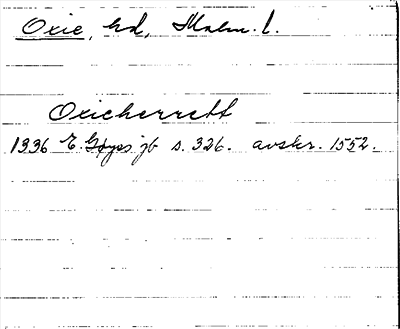 Oxie, hd, Malm. l.
Oxieherrett
1336 E. Gøyes jb s. 326. avskr. 1552.